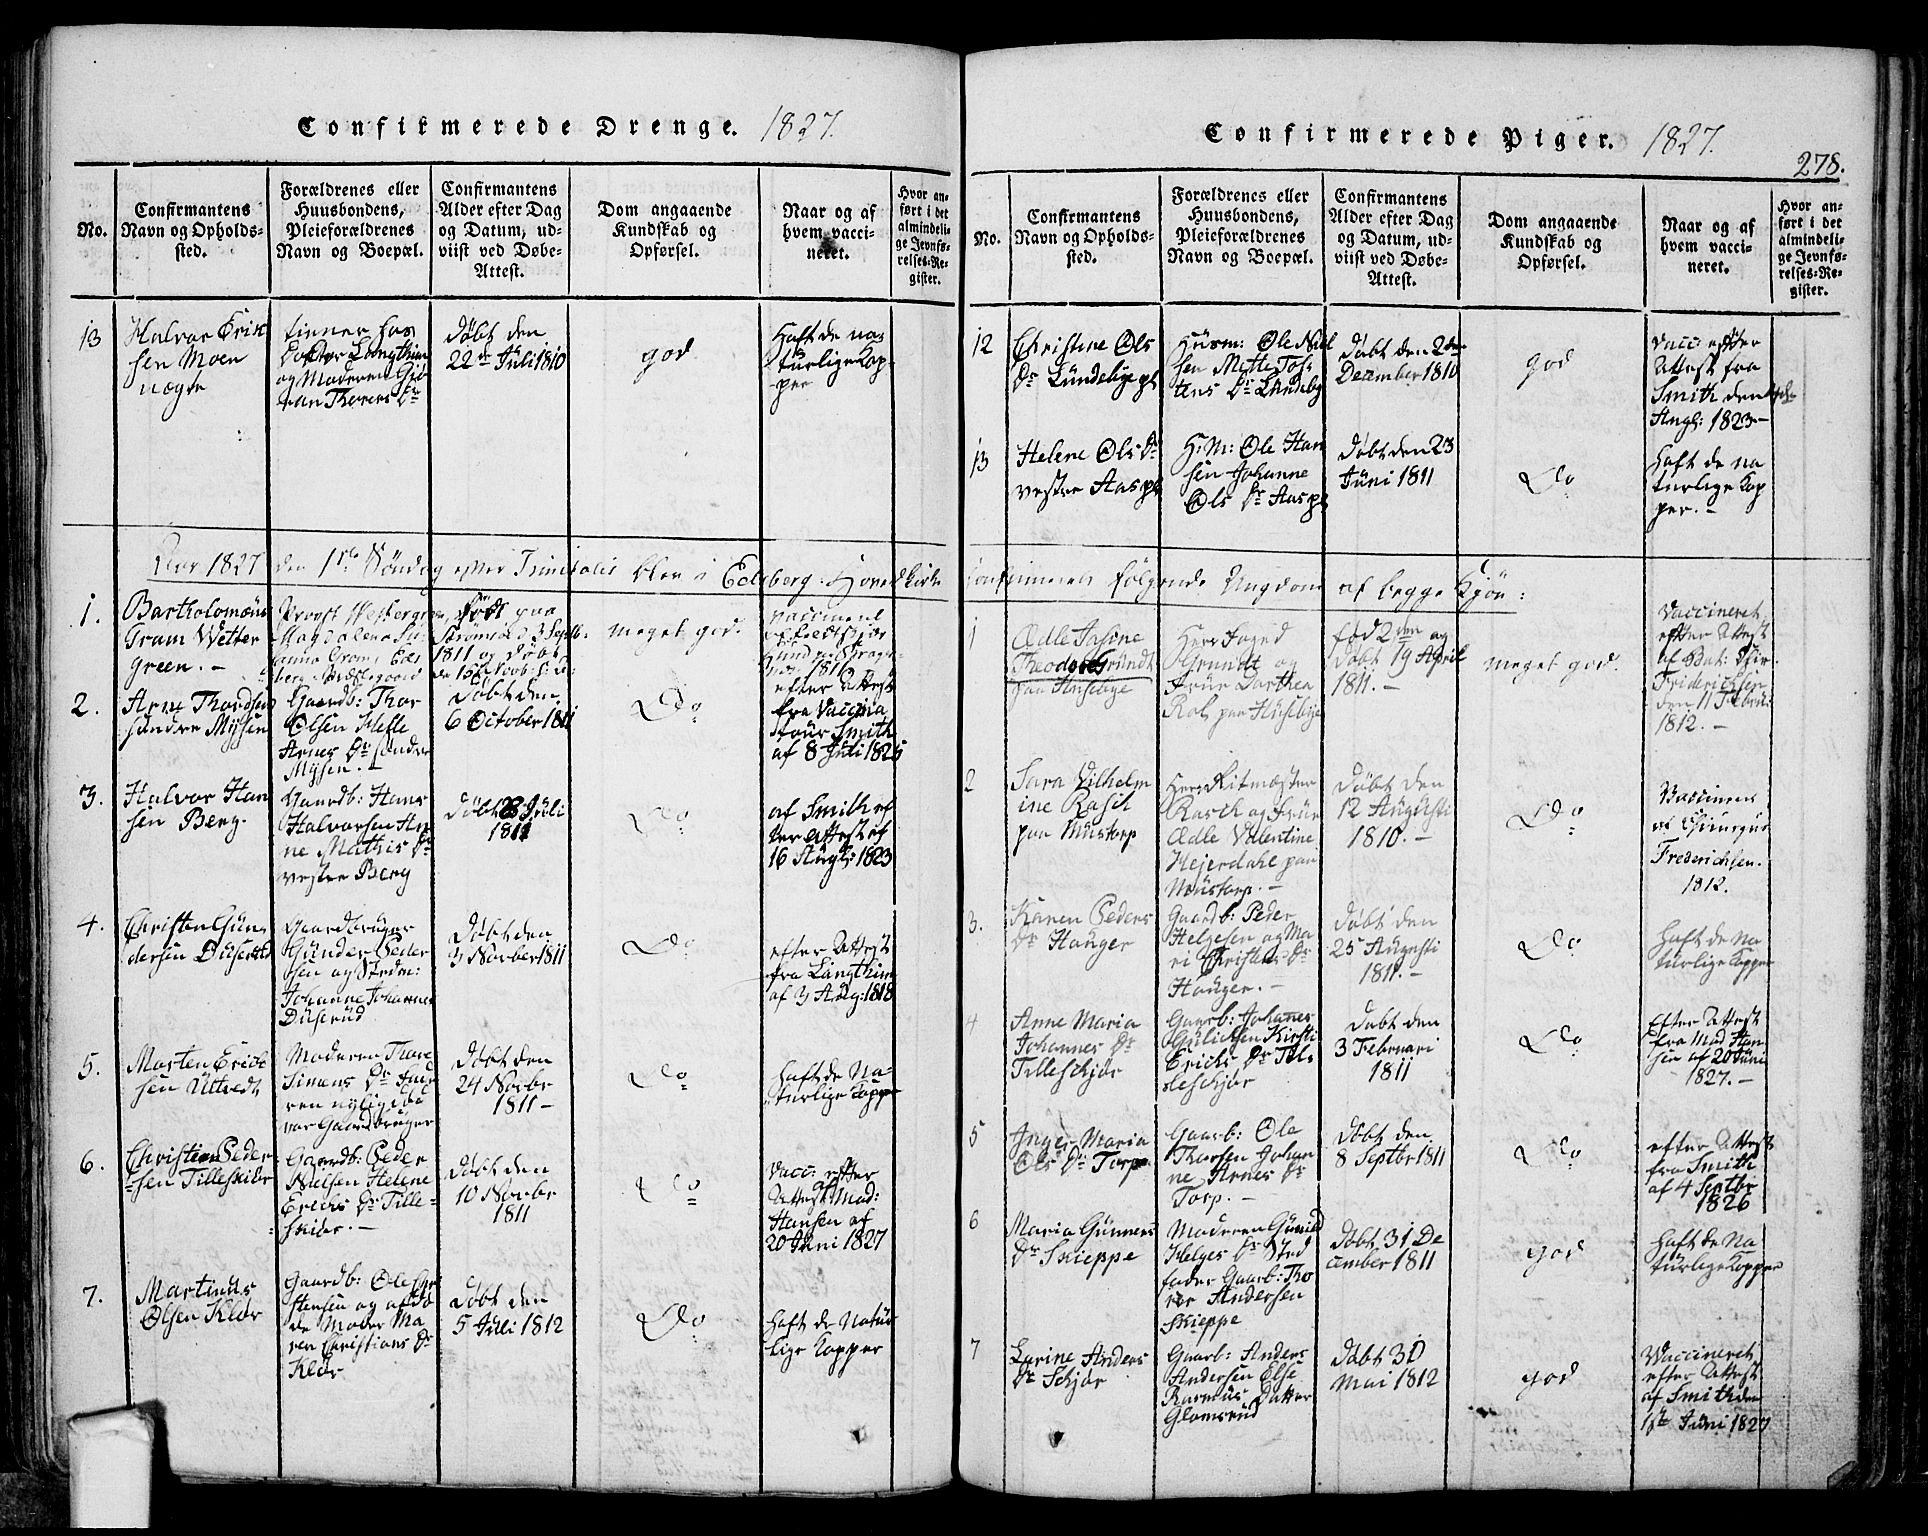 Confirmerede Drenge. 1827.
No.
Confirmantens
Navn og Opholds-
sted.
Forældrenes eller
Huusbondens,
Pleieforældrenes
Navn og Boepæl.
Confirmantens
Alder efter Dag
og Datum, ud-
viist ved Døbe-
Attest.
Dom angaaende
Kundskab og
Opførsel.
Naar og af
hvem vacci-
neret.
Hvor an-
ført i det
almindeli-
ge Jevnfø-
relses-Re-
gister.
13
Halvor Erik
sen Moen
nægte
tiener hos
Doktor Langthim
og Moderen Gjø
ran Thorers Dr
døbt den
22de Juli 1810
god
haft de na
turlige Kop-
per
Aar 1827 den 1ste Søndag efter Trinitatis blev i Edsberg Hoved Kirke
1.
Bartholomæus
Gram Wetter
green. -
Provst Wettergreen
Magdalena Su
sanna Gram Eds
berg Præstegaard
født paa
Strømsøe d 3 Septb:
1811 og døbt
meget god.
vaccineret
1816
2.
Arne Thordsen
søndre Mysen
Gaardb: Thor
Olsen Helle
Arnes Dr sønder
Mysen. -
døbt den
6 October 1811
Do
efter Attest
fra Vaccina
teur Smith
af 8 Juli 1825
3.
Halvor Han
sen Berg.
Gaardb: Hans
Halvorsen An
ne Mathis Dr
vestre Berg
døbt 28 Juli
1811
Do
af Smith ef
ter Attest af
16 Augt: 1823
4.
Christen Gun
dersen Duserud
Gaardbruger
Gunder Peder
sen og Stedm:
Johanne Johannes
Duserud
døbt den
3 Novbr 1811
Do
efter Attest
fra Langthim
af 3 Aug: 1818
5.
Morten Erich
sen Ultvedt
Moderen Thore
Simens Dr Fade
ren nylig døe
var Gaardbruger
døbt den
24 Novbr
1811 -
Do
haft de Na-
turlige Kopper
6.
Christian Peder
sen Tilleskiør
Gaardb: Peder
Nielsen Helene
Erichs Dr Tille-
skiør. -
døbt den
10 Novbr
1811
Do
vacc: efter
Attest Mad:
Hansen af
20 Juni 1827
7.
Martinus
Olsen Kløv
Gaardb: Ole Chri
stensen og afdø
de Moder Ma
ren Christians Dr
Kløv
døbt den
5 Juli 1812
Do
haft de Natur
lige Kopper
Confirmerede Piger. 1827.
278.
No.
Confirmantens
Navn og Opholds-
sted.
Forældrenes eller
Huusbondens,
Pleieforældrenes
Navn og Boepæl.
Confirmantens
Alder efter Dag
og Datum, ud-
viist ved Døbe-
Attest.
Dom angaaende
Kundskab og
Opførsel.
Naar og af
hvem vacci-
neret.
Hvor an-
ført i det
almindeli-
ge Jevnfø-
relses-Re-
gister.
12
Christine Ols
Dr Lundebye pl
Huusm: Ole Niel
sen Mette Tos
tens Dr Lundeby
døbt den 2den
December 1810
god
vacc efter
Attest fra
Smith den
Augt: 1823 -
13
Helene Ols Dr
vestre Aas pl
H: M: Ole Han
sen Johanne
Ols Dr Aas pl
døbt den 23
Juni 1811
Do
haft de na
turlige Kop
per. -
confirmeret følgende Ungdom af begge Kjøn:
1
Ædle Jasine
Theodora Grundt
paa Husebye
Herr Foged
Grundt og
Frue Dorthea
Rol paa Husebye
fød 2den og
døbt 19 April
1811. -
meget god.
Vaccineret
efter Attest
af Bat: Chir:
Friderichsen
den 11 Februar
1812. -
2
Sara Vilhelm
ine Rasch
paa Mustorp
Herr Ritmæster
Rasch og Frue
Ædle Valentine
Hejerdahl paa
Mustorp. -
døbt den
12 Augusti
1810. -
Do
Vaccineret
af Chirurgus
Frederichsen.
1812.
3.
Karen Peders
Dr Hauger
Gaardb: Peder
Helgesen og Ma
ri Christens Dr
Hauger. -
døbt den
25 Augusti
1811. -
Do
haft de Na
turlige Kopper
4
Anne Maria
Johannes Dr
Tilleskjør
Gaarb: Johanes
Gulichsen Kirsti
Erichs Dr Til
leskjør
døbt den
3 Februari
1811
Do
Efter Attest
fra Mad Han
sen af 20 Juni
1827. -
5
Inger Maria
Ols Dr Torp
Gaarb: Ole
Thorsen Johan
ne Arnes Dr
Torp. -
døbt den
8 Septbr 1811
Do
efter Attest
fra Smith
af 4 Septbr
1826
6
Maria Gunners
Dr Skieppe
Moderen Gunild
Helges Dr Sted
fader Gaarb: Tho
rer Andersen
Skieppe
døbt 31 De
cember 1811
god
haft de Na
turlige Kopper
7
Larine Anders
Dr Schjør
Gaarb: Anders
Andersen Else
Rasmus Datter
Glomsrud
døbt 30
Mai 1812
god
Vaccineret
efter Attest
af Smith den
1ste Juni 1827